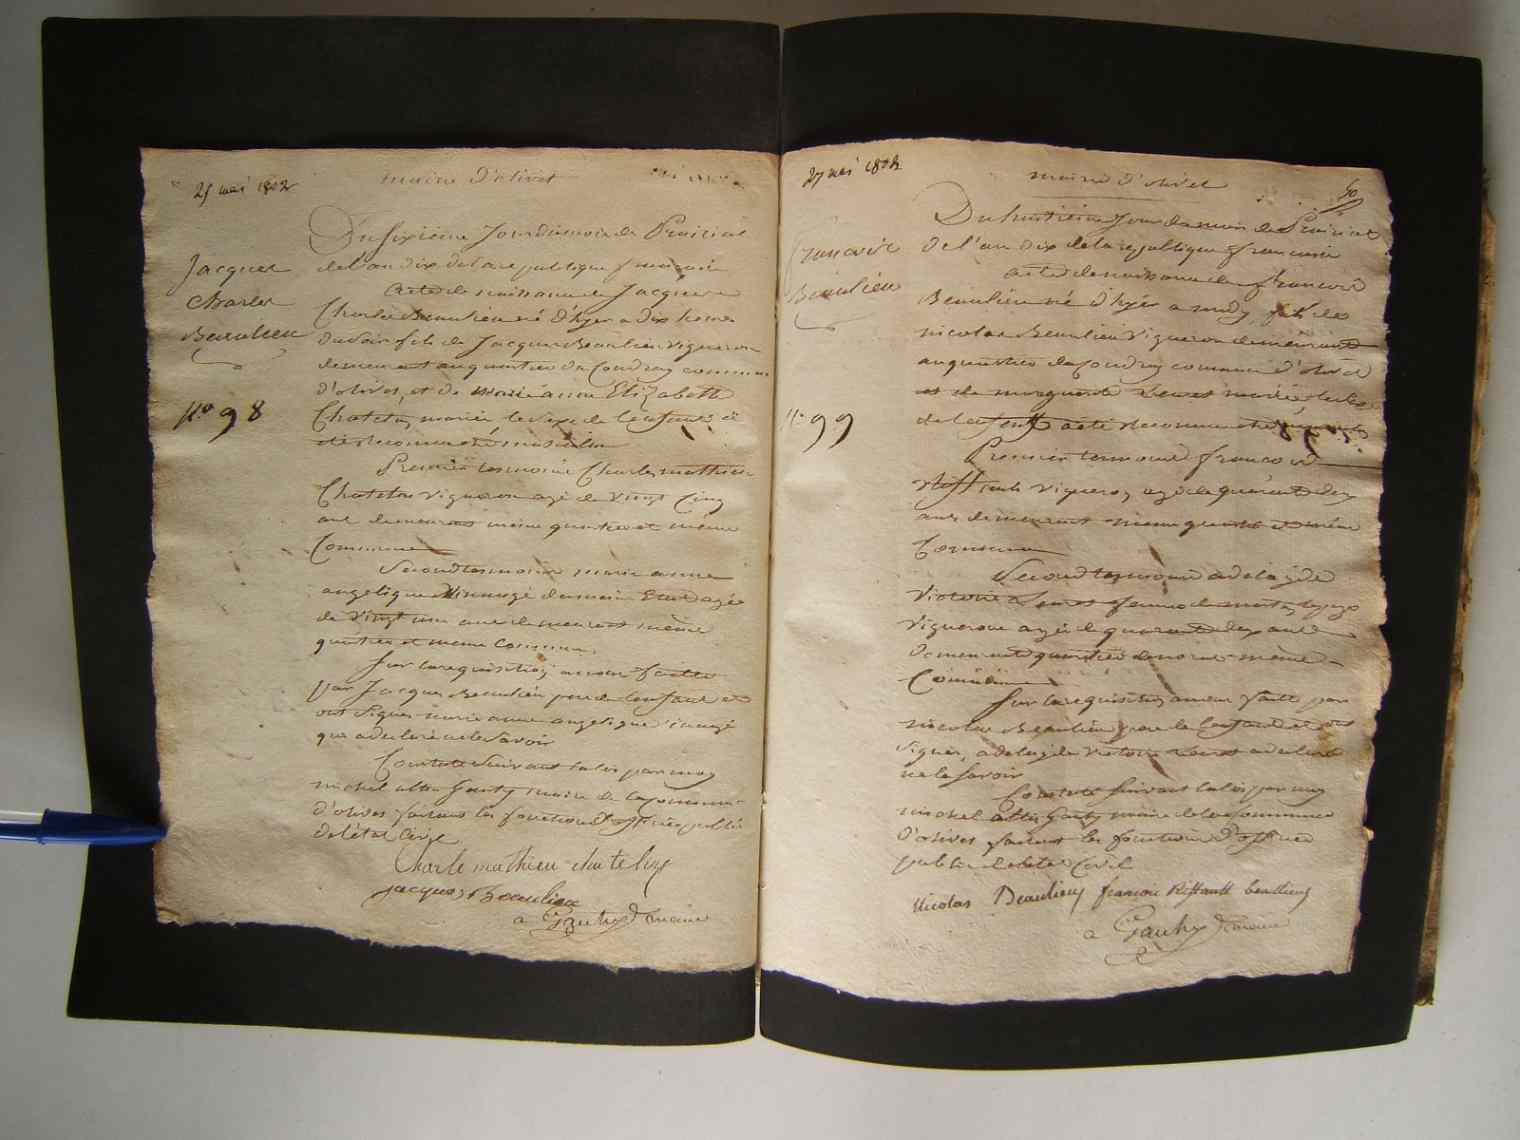 25 mai 1802
mairie d'olivet
Jacques
Charles
Beaulieu
No 98
Du sixieme Jour du mois de Prairial
de l'an Dix de la republique francaise
Acte de naissance de Jacques
Charles Beaulieu né d'hyer a dix heures
du soir fils de Jacques Beaulieu vigneron
demeurant au quartier du Coudray commune
d'olivet, et de marie anne Elizabeth
Chatelin mariés le sexe de l'enfant a
été reconnu masculin
Premier temoin Charles mathieu
Chatelin vigneron agé de vingt Cinq
ans demeurant même quartier et même
Commune
Second temoin marie anne
angelique agée
de Vingt un ans demeurant même
quartier et meme Commune
Sur la requisition a nous faitte
par Jacques Beaulieu pere de l'enfant et
ont signés marie anne angelique
qui a declaré ne le savoir
Constaté suivant la loi par moy
michel alba Gauthy maire de la Commune
d'olivet faisant les fonctions d'officier public
de l'état Civil
Charle mathieu chatelin
jacques Beaulieu
a Gauthy maire
27 mai 1802
mairie d'olivet
50
francois
Beaulieu
No 99
Du huitieme Jour du mois de Prairial
de l'an Dix de la republique francaise
acte de naissance de francois
Beaulieu né d'hyer a midy, fils de
nicolas Beaulieu vigneron demeurant
au quartier du Coudray commune d'olivet
et de marguerite mariés le sexe
de l'enfant a été reconnu
Premier temoin francois
Riffault vigneron agé de quarante deux
ans demeurant meme quartier et même
Commune
Second temoin adelayde
Victoire femme de
vigneron agée de quarante deux ans
demeurant quartier même
Commune
Sur la requisition a nous faitte par
nicolas Beaulieu pere de l'enfant et ont
signés, adelayde Victoire a declaré
ne le savoir
Constaté suivant la loi par moy
michel alba Gauthy maire de la Commune
d'olivet faisant les fonctions d'officier
public de l'état Civil
Nicolas Beaulieu francoi Riffault beaulieu
a Gauthy maire